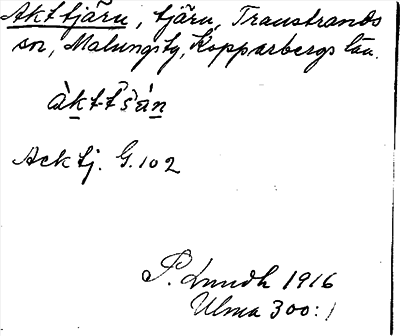 Akttjärn, tjärn, Transtrands
sn, Malungs tg, Kopparbergs län.
àkttšán
Acktj. G. 102
P. Lundh 1916
Ulma 300:1